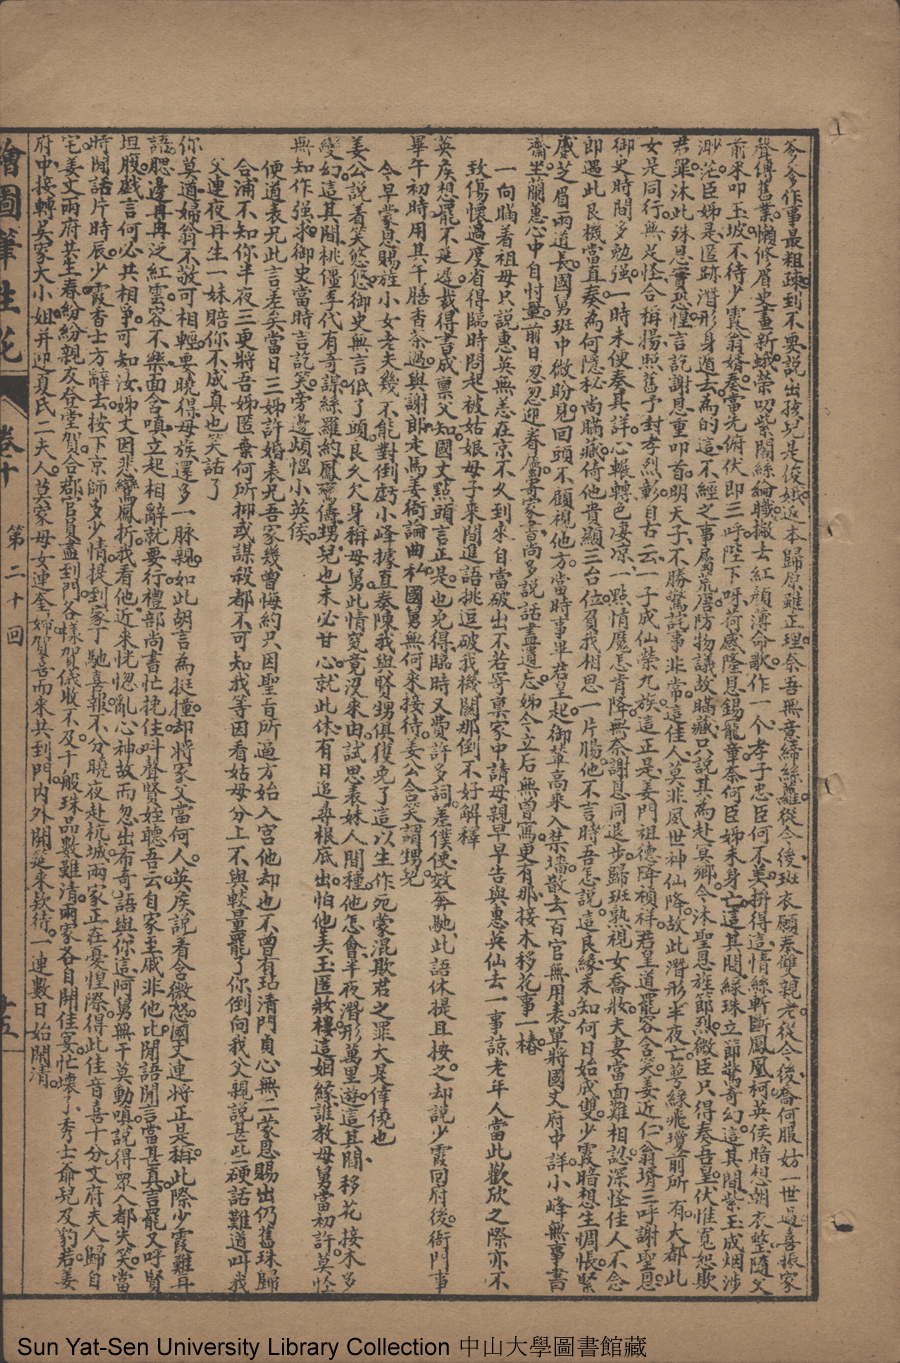 爹爹作事最粗疎到不要說出孩兒是俊娥近本歸原雖正理奈吾無意締絲蘿從今後班衣願奉雙親老從今後喬何服妨一世過喜振家
聲傳舊業懶修眉史畫新蛾榮叨紫閣絲綸職撇去紅顏薄命歌作一个孝子忠臣何不美拚得這情絲斬斷鳳凰柯英侯暗想朝衣整隨父
前來叩玉坡不待少霞翁婿奏當先俯伏即三呼陛下呀荷感隆恩錫寵章奈何臣姊未身亡這其間綠珠立節驚奇幻這其間紫玉成烟涉
渺茫臣姊是匿跡潛形身遁去為的這不經之事屬荒唐防物議故瞞藏只說其為赴冥鄉今沐聖恩旌節烈微臣只得奏吾皇伏惟寬恕欺
君罪沐此殊恩實恐惶言訖謝恩重叩首明天子不勝驚詫事非常這佳人莫非風世神仙降故此潛形半夜亡萼綠飛瓊前所有大都此
女是同行無足怪合稱揚照舊予封孝烈彰自古云一子成仙榮九族這正是姜門祖德降禎祥君皇道罷容含笑姜近仁翁壻三呼謝聖恩
御史時間多勉強一時未便奏其詳心輾轉色淒凉一點情魔怎肯降無奈謝恩同退步歸班熟視女喬妝夫妻當面難相認深怪佳人不念
即遇此良機當直奏為何隱祕尚瞞藏倚他貴顯三台位負我相思一片腸他不言時吾怎說這良緣未知何日始成雙少霞暗想生惆悵緊
戚芝眉兩道長國舅班中微盼見回頭不顧視他方當時事畢君皇起御輦高來入禁墻散去百官無用表單將國丈府中詳小峰無事書
齋坐蘭蕙心中自忖量前日忽忽迎眷屬寄家書尚多說話盡遺忘姊今立后無曾寫更有那接木移花事一樁
一向瞞着祖母只說惠英無恙在京不久到來自當破出不若寄稟家中請母親早早告與惠英仙去一事諒老年人當此歡欣之際亦不
致傷懷過度省得臨時問起被姑娘母子來間進語挑逗破我機關那倒不好解釋
英侯想罷不延遲裁得書成稟父知國丈點頭言正是也免得臨時又費許多詞差僕使效奔馳此語休提且按之却說少霞回府後衙門事
畢午初時用其午膳香茶過與謝郎走馬姜衙論曲私國舅無何來接待姜公含笑謂甥兒
今早蒙恩賜旌小女老夫幾不能對倒虧小峰據直奏陳我與賢甥俱獲免了這以生作死蒙混欺君之罪大是僥僥也
姜公說着笑悠悠御史無言低了頭良久欠身稱母舅此情究竟沒來由試思表妹人閨種他怎會半夜潛形萬里遊這其間移花接木多
變幻這其間桃僵李代有奇謀絲蘿約鳳鸞儔甥兒也未必甘心就此休有日追尋根底出怕他美玉匿妝樓這姻緣誰教母舅當初許莫怪
無知作強求御史當時言訖笑旁邊頗惱小英侯
便道表兄此言差矣當日三姊許婚表兄吾家幾曾悔約只因聖旨所逼方始入宮他却也不曾有玷清門貞心無二蒙恩賜出仍舊珠歸
合浦不知你半夜三更將吾姊匿棄何所抑或謀殺都不可知我等因看姑母分上不與較量罷了你倒向我父親說甚些硬話難道叫我
父連夜再生一妹賠你不成真也笑話了
你莫道婦翁不敬可相輕要曉得母族還多一脉親如此胡言為挺撞却將家父當何人英侯說着含微怒國丈連將正是稱此際少霞難耳
語腮邊冉冉泛紅雲容不樂面含嗔立起相辭就要行禮部尚書忙挽住呌聲賢姪聽吾云自家至戚非他比閒語閒言當甚真言罷又呼賢
坦腹戲言何必共相爭可知汝姊丈因悲鸞鳳折我看他近來恍惚亂心神故而忽出布奇語與你這阿舅無干莫動嗔說得眾人都失笑當
時閒話片時辰少霞香士方辭去按下京師多少情提到家丁馳喜報不分曉夜赴杭城兩家正在憂惶際得此佳音喜十分文府夫人歸自
宅姜文兩府共生春紛紛親友登堂賀合郡官員盡到門各樣賀儀收不及千般珠品數難清兩家各自開佳宴忙壞小秀士爺兒及豹君姜
府中接轉吳家大小姐并迎夏氏二夫人莫家母女連金婦賀喜而來共到門內外開筵來欵待一連數日始閒清
繪圖筆生花 卷十 第二十回 十五